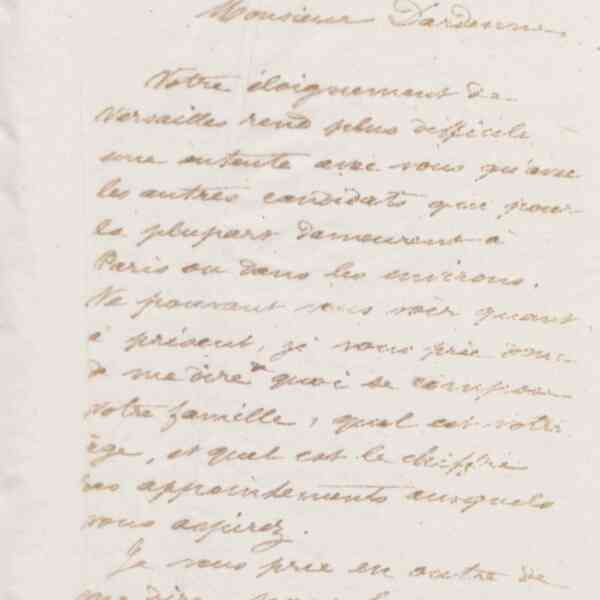 Monsieur Dardenne,
Votre éloignement de
Versailles rend plus difficile
une entente avec vous qu'avec
les autres candidats qui pour
la plupart demeurent à
Paris ou dans les environs.
Ne pouvant vous voir quant
à présent, je vous prie donc
de me dire de quoi se compose
votre famille, quel est votre
âge, et quel est le chiffre
des appointements auxquels
vous aspirez.
Je vous prie en outre de
me dire